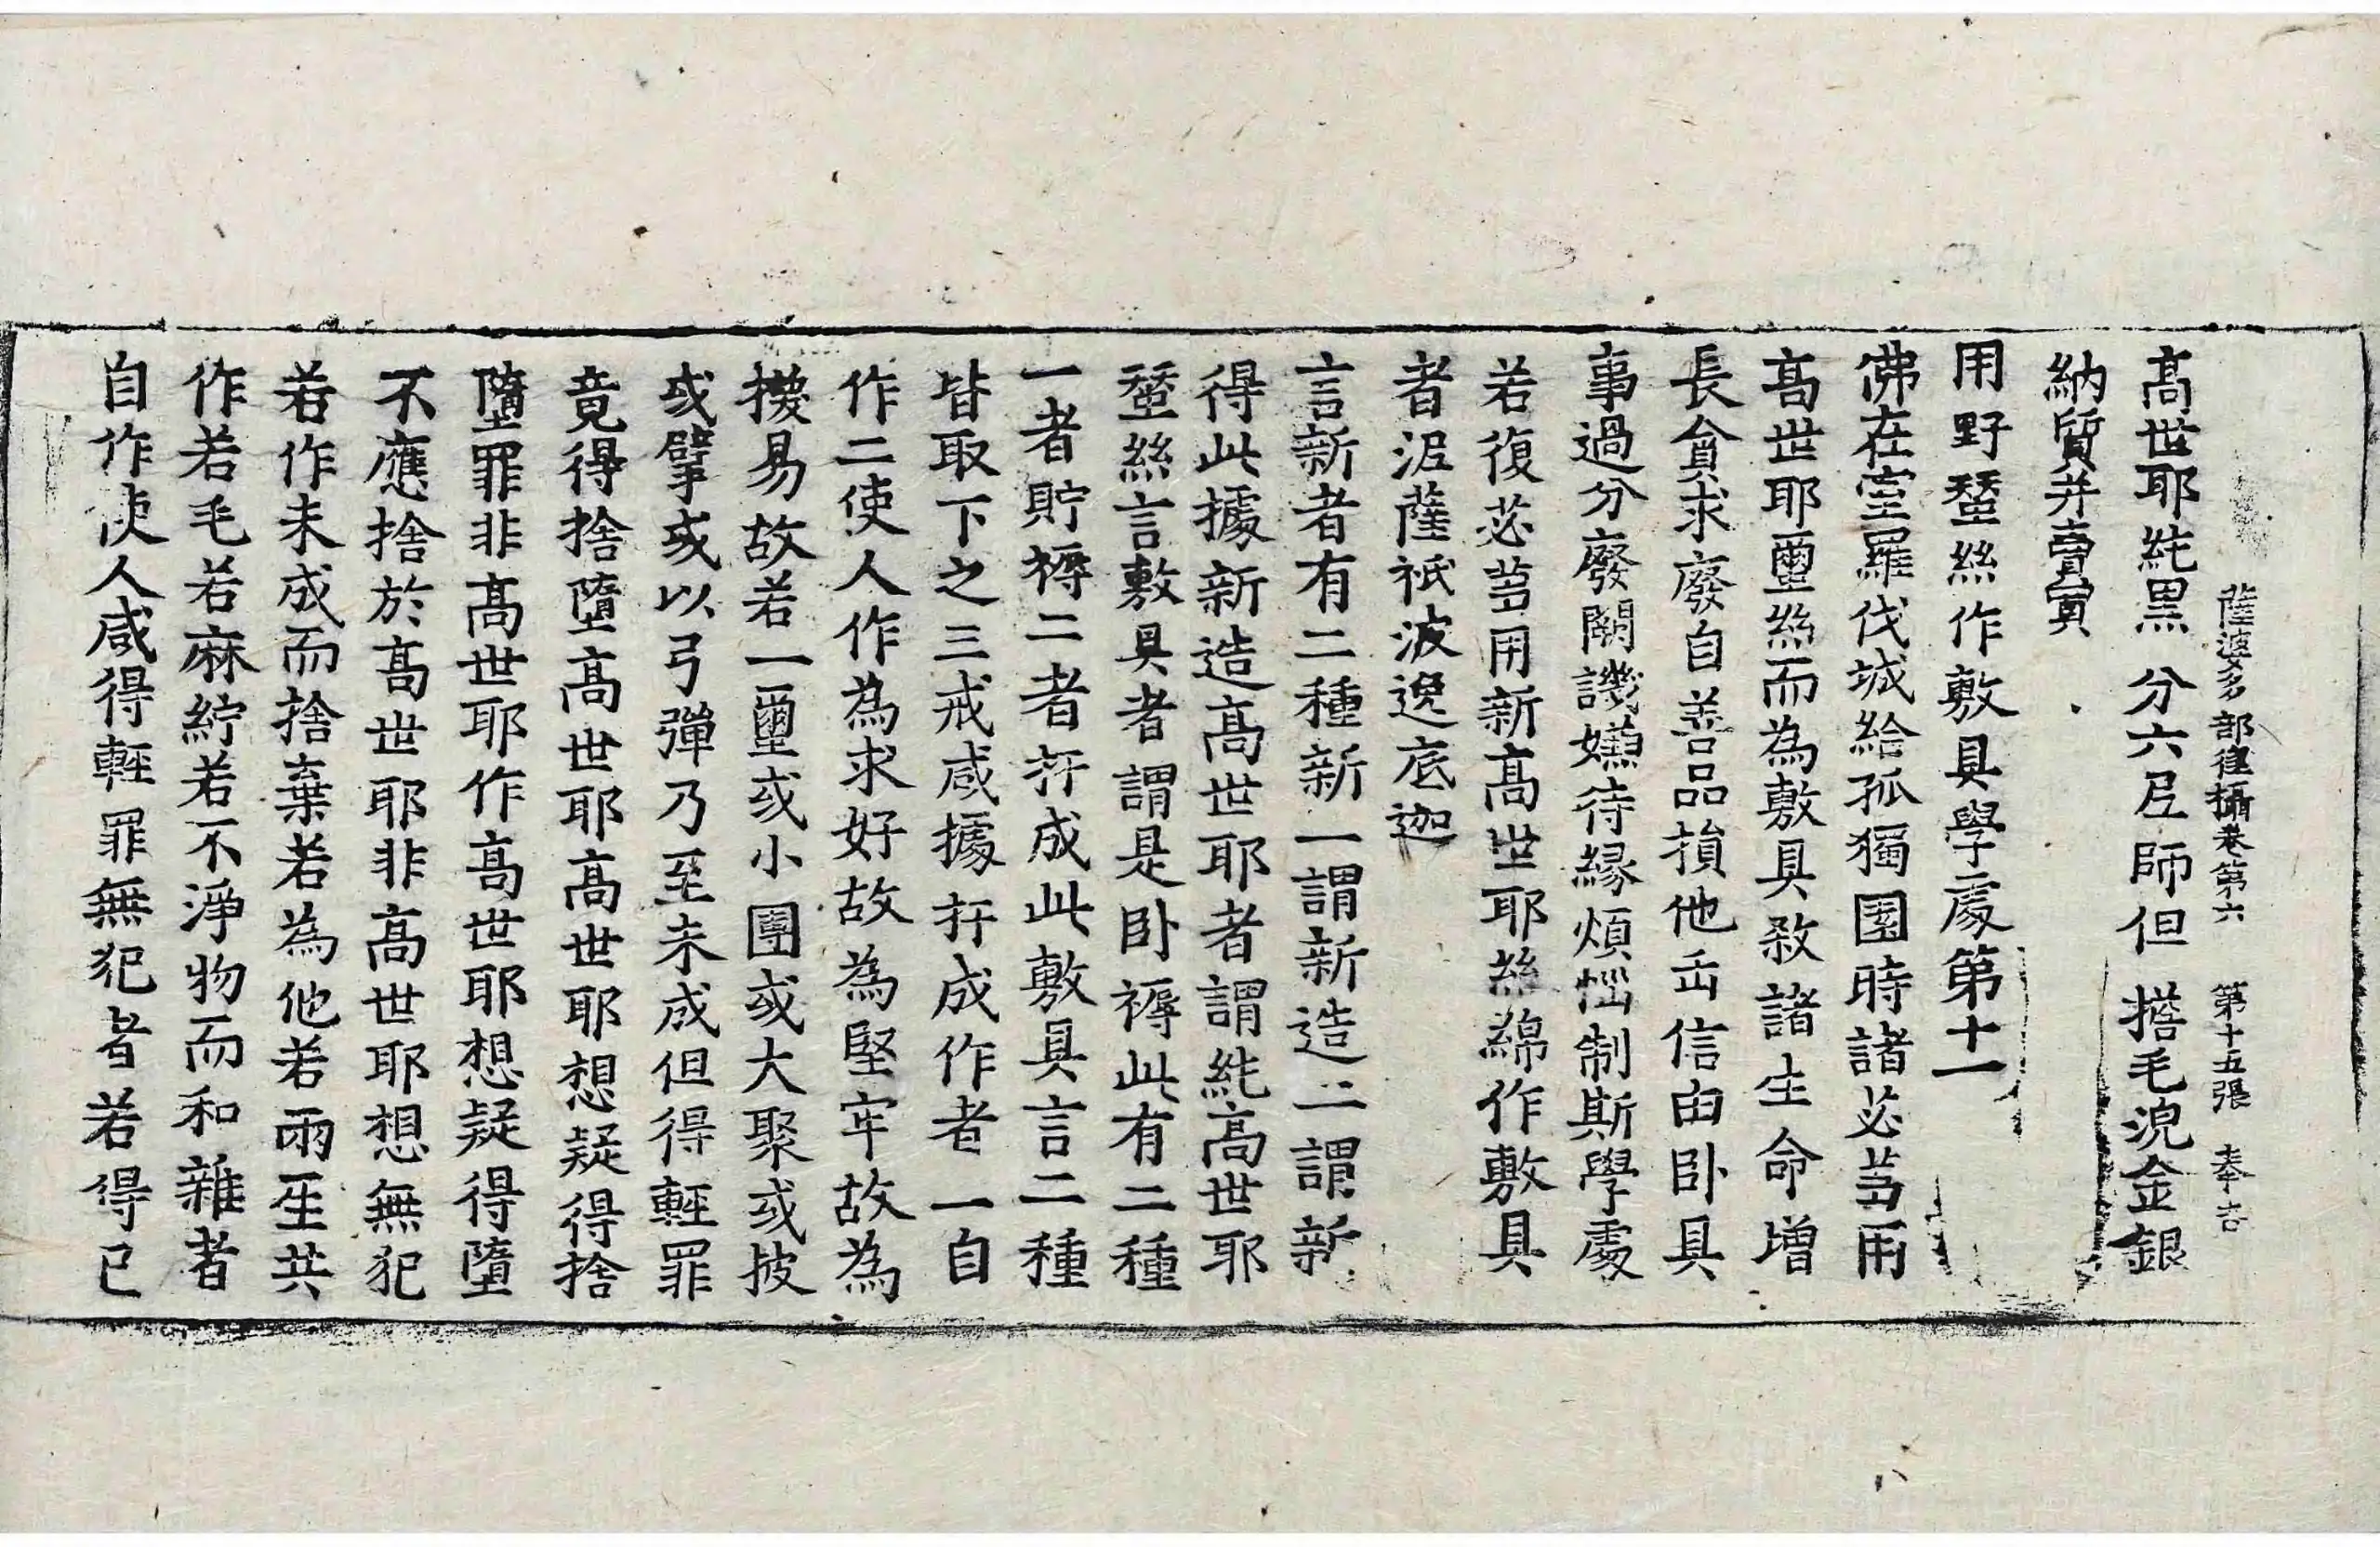 薩婆多部律攝卷第六 第十五張 奉吉
髙世耶純黒 分六尼師但 擔毛浣金銀
納質并賣買
用野蚕絲作敷具學處第十一
佛在室羅伐城給孤獨園時諸苾芻用
髙世耶蠒絲而為敷具殺諸生命增
長貪求廢自善品損他正信由卧具
事過分廢闕譏嫌待緣煩惱制斯學處
若復苾芻用新髙世耶絲綿作敷具
者泥薩祇波逸底迦
言新者有二種新一謂新造二謂新
得此據新造髙世耶者謂純髙世耶
蚕絲言敷具者謂是卧褥此有二種
一者貯褥二者扞成此敷具言二種
皆取下之三戒咸據扞成作者一自
作二使人作為求好故為堅牢故為
換易故若一蠒或小團或大聚或披
或擘或以弓彈乃至未成但得輕罪
竟得捨墮髙世耶髙世耶想疑得捨
墮罪非髙世耶作髙世耶想疑得墮
不應捨於髙世耶非髙世耶想無犯
若作未成而捨棄若為他若兩人共
作若毛若麻紵若不淨物而和雜者
自作使人咸得輕罪無犯者若得已